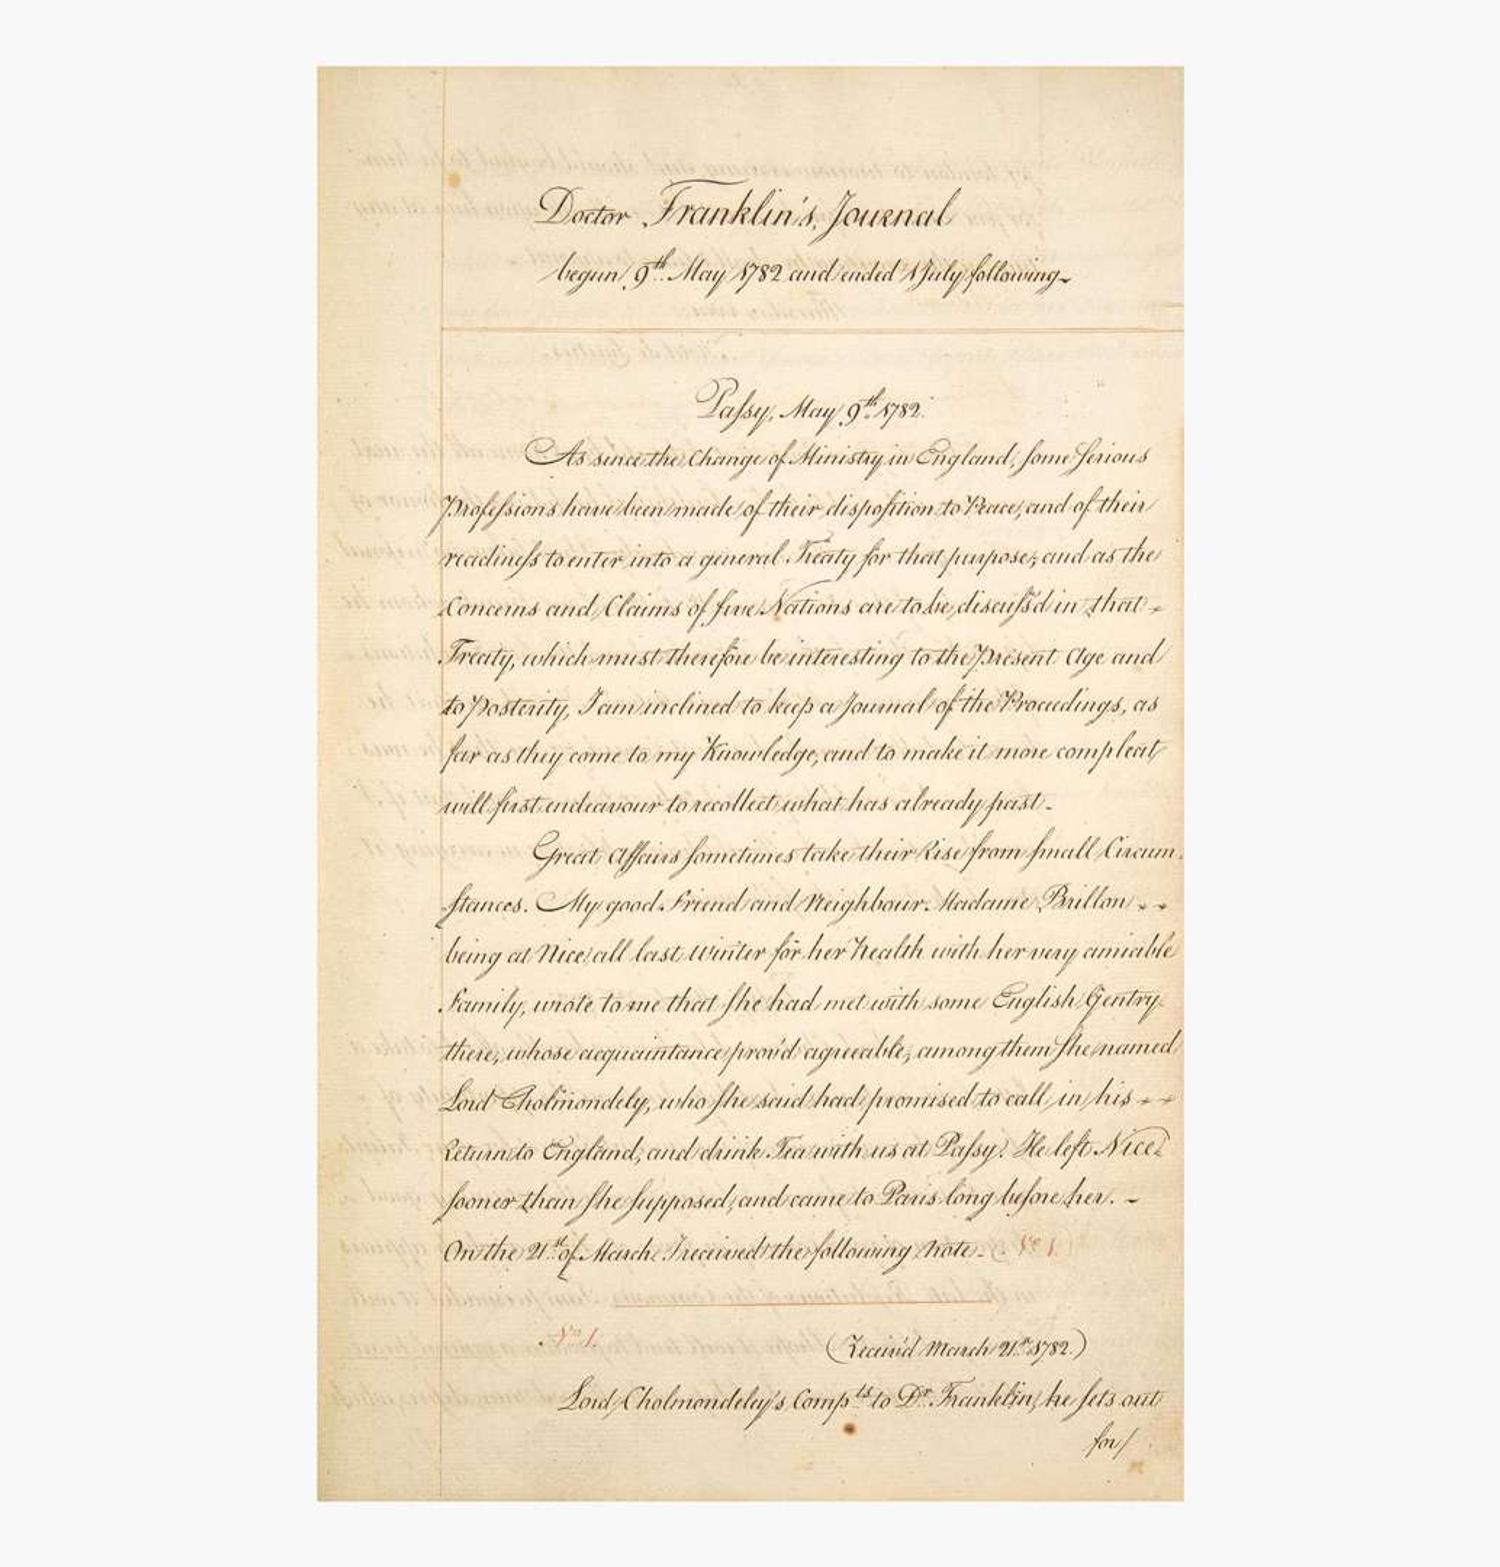 Doctor Franklin's Journal
begun 9th May 1782 and ended 1 July following
Paſsy, May 9th 1782.
As since the Change of Ministry in England, ſome ſerious
Profeſsions have been made of their diſpoſition to Peace, and of their
readineſs to enter into a general Treaty for that purpose, and as the
Concerns and Claims of five Nations are to be discuſs'd in that
Treaty, which must therefore be interesting to the Present Age and
to Posterity, I am inclined to keep a Journal of the Proceedings, as
far as they come to my Knowledge, and to make it more compleat
will first endeavour to recollect what has already past.
Great Affairs ſometimes take their Rise from ſmall Circum-
ſtances. My good Friend and Neighbour Madame Brillon
being at Nice all last Winter for her Health with her very amiable
Family, wrote to me that ſhe had met with some English Gentry
there, whose acquaintance prov'd agreeable, among them ſhe named
Lord Cholmondely, who ſhe said had promised to call in his
Return to England, and drink Tea with us at Paſsy. He left Nice
ſooner than ſhe ſupposed, and came to Paris long before her. -
On the 21st of March I received the following Note. (No 1.)
No 1.
(Receiv'd March 21st 1782.)
Lord Cholmondeley's Compts to Dr Franklin, he ſets out
for/